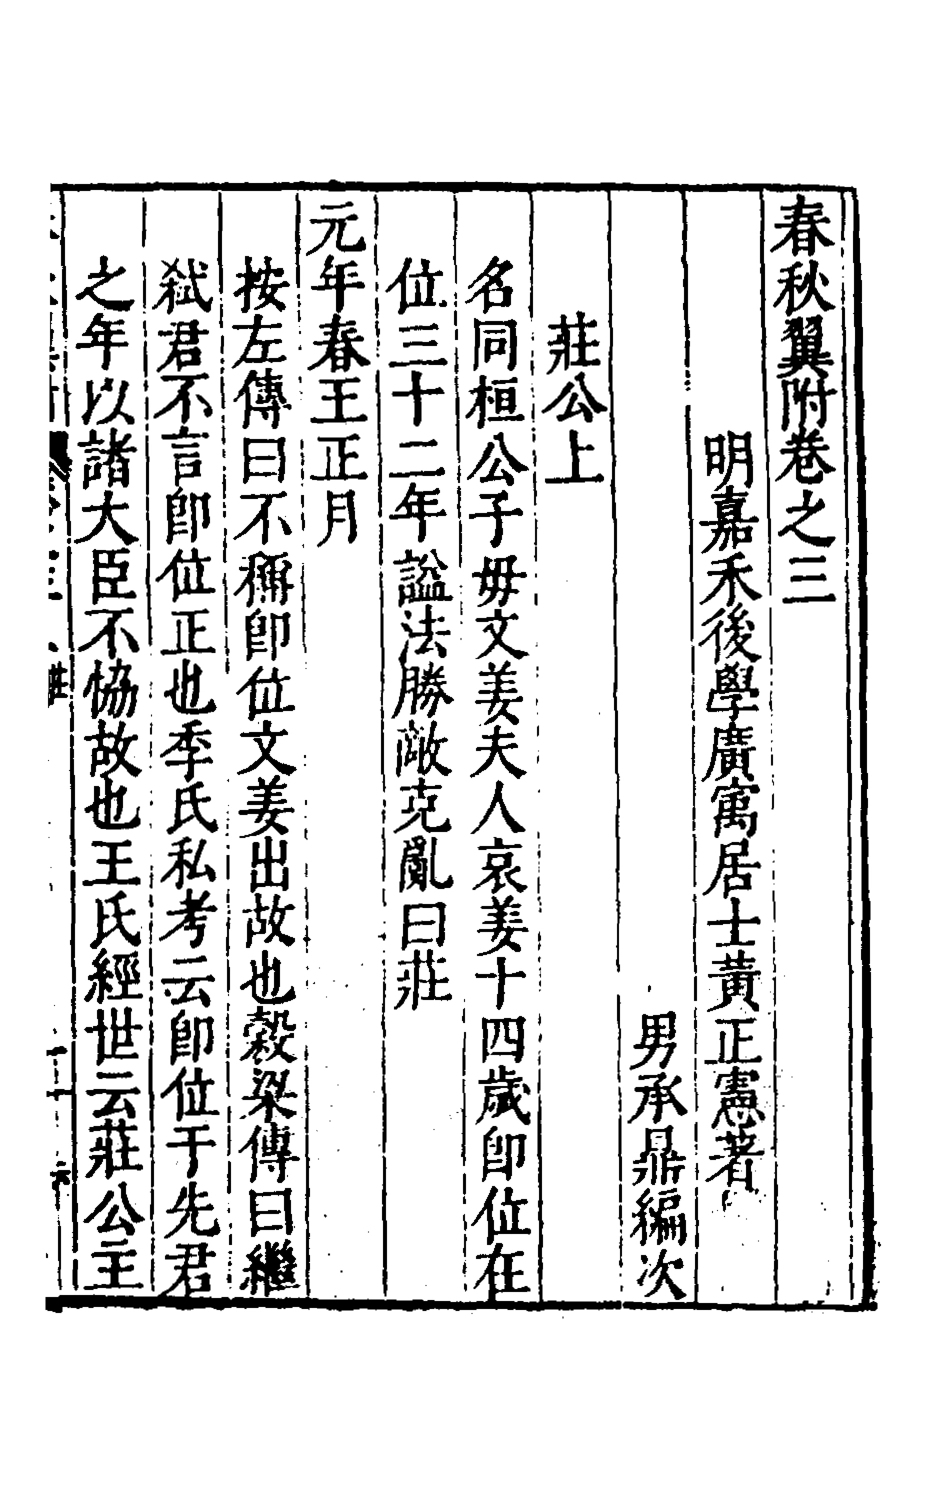 春秋翼附卷之三
明嘉禾後學廣寓居士黃正憲著
男承鼎編次
莊公上
名同桓公子毋文姜夫人哀姜十四歲卽位在
位三十二年謚法勝敵克亂曰莊
元年春王正月
按左傳曰不稱卽位文姜出故也榖梁傳曰繼
弑君不言卽位正也季氏私考云卽位于先君
之年以諸大臣不恊故也王氏經世云莊公主